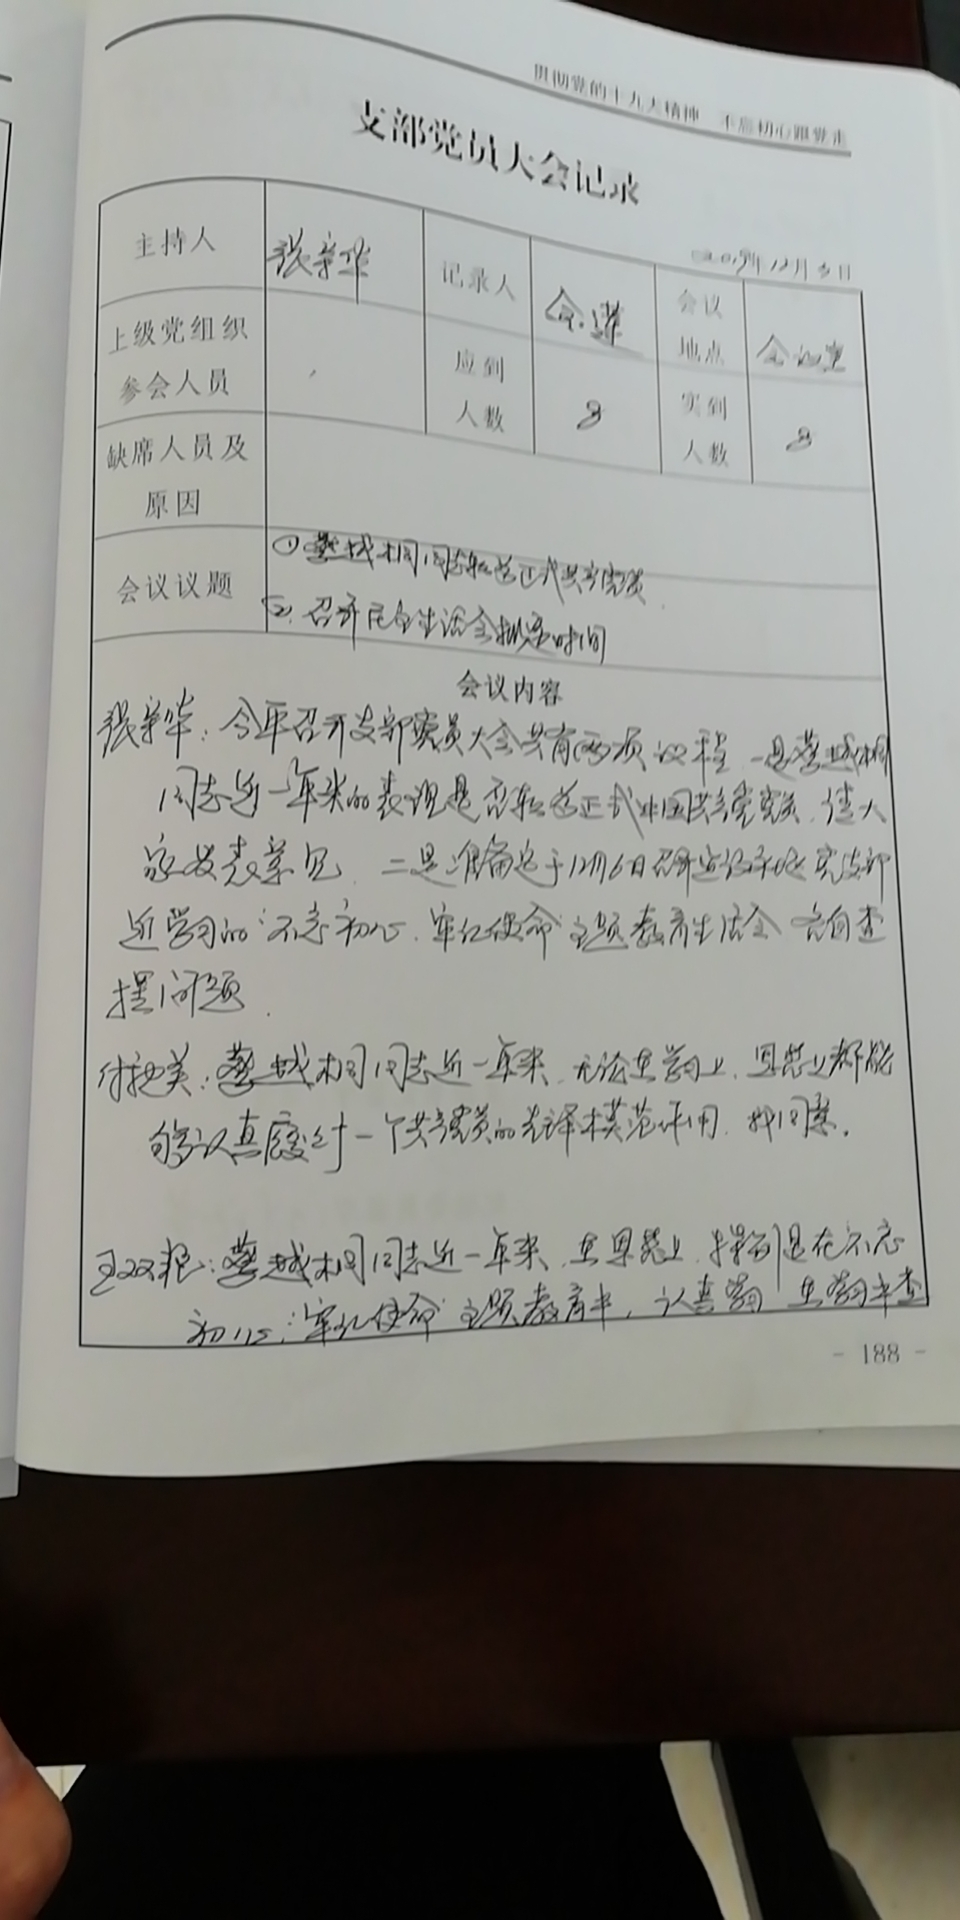 贯彻党的十九大精神 不忘初心跟党走
支部党员大会记录
2019年12月 日
主持人 记录人 会议地点 会议室
上级党组织参会人员 应到人数 8 实到人数 8
缺席人员及原因
会议议题 ① 同志转为正式共产党员
2. 召开民主生活会拟定时间
会议内容
今年召开支部党员大会共有两项议程 一是蔡城桐
同志近一年来的表现是否转为正式中国共产党党员, 请大
家发表意见. 二是准备定于12月6日召开 党支部
近学习的“不忘初心, 牢记使命”主题教育生活会 各自查
摆问题.
蔡城桐同志近一年来, 无论在学习上, 思想上都能
够认真履行一个共产党员的先锋模范作用, 我同意.
王双 : 蔡城桐同志近一年来, 在思想上, 特别是在不忘
初心, 牢记使命”主题教育中, 认真学习 在学习中查
- 188 -